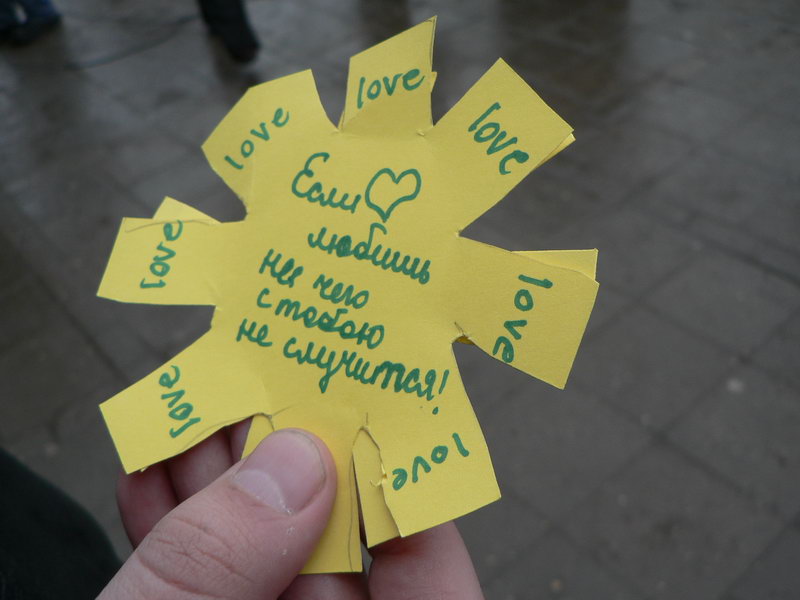 love
love
love
love
love
love
love
love
Если ♡
любишь
ни чего
с тобою
не случится!